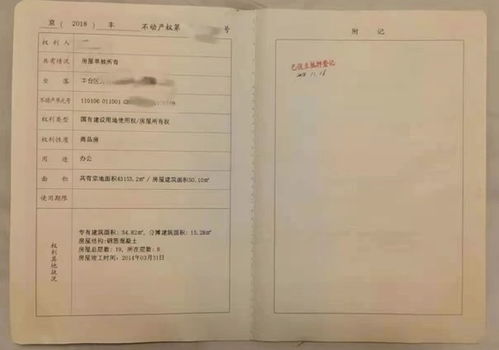 京（2018）丰 不动产权第 号
权利人
共有情况 房屋单独所有
坐落 丰台区
不动产单元号 110106 011001
权利类型 国有建设用地使用权/房屋所有权
权利性质 商品房
用途 办公
面积 共有宗地面积43153.2m²/房屋建筑面积50.10m²
使用期限
权利其他状况
专有建筑面积：34.82m²，分摊建筑面积：15.28m²
房屋结构：钢筋混凝土
房屋总层数：19，所在层数：8
房屋竣工时间：2014年03月31日
附记
已设立抵押登记